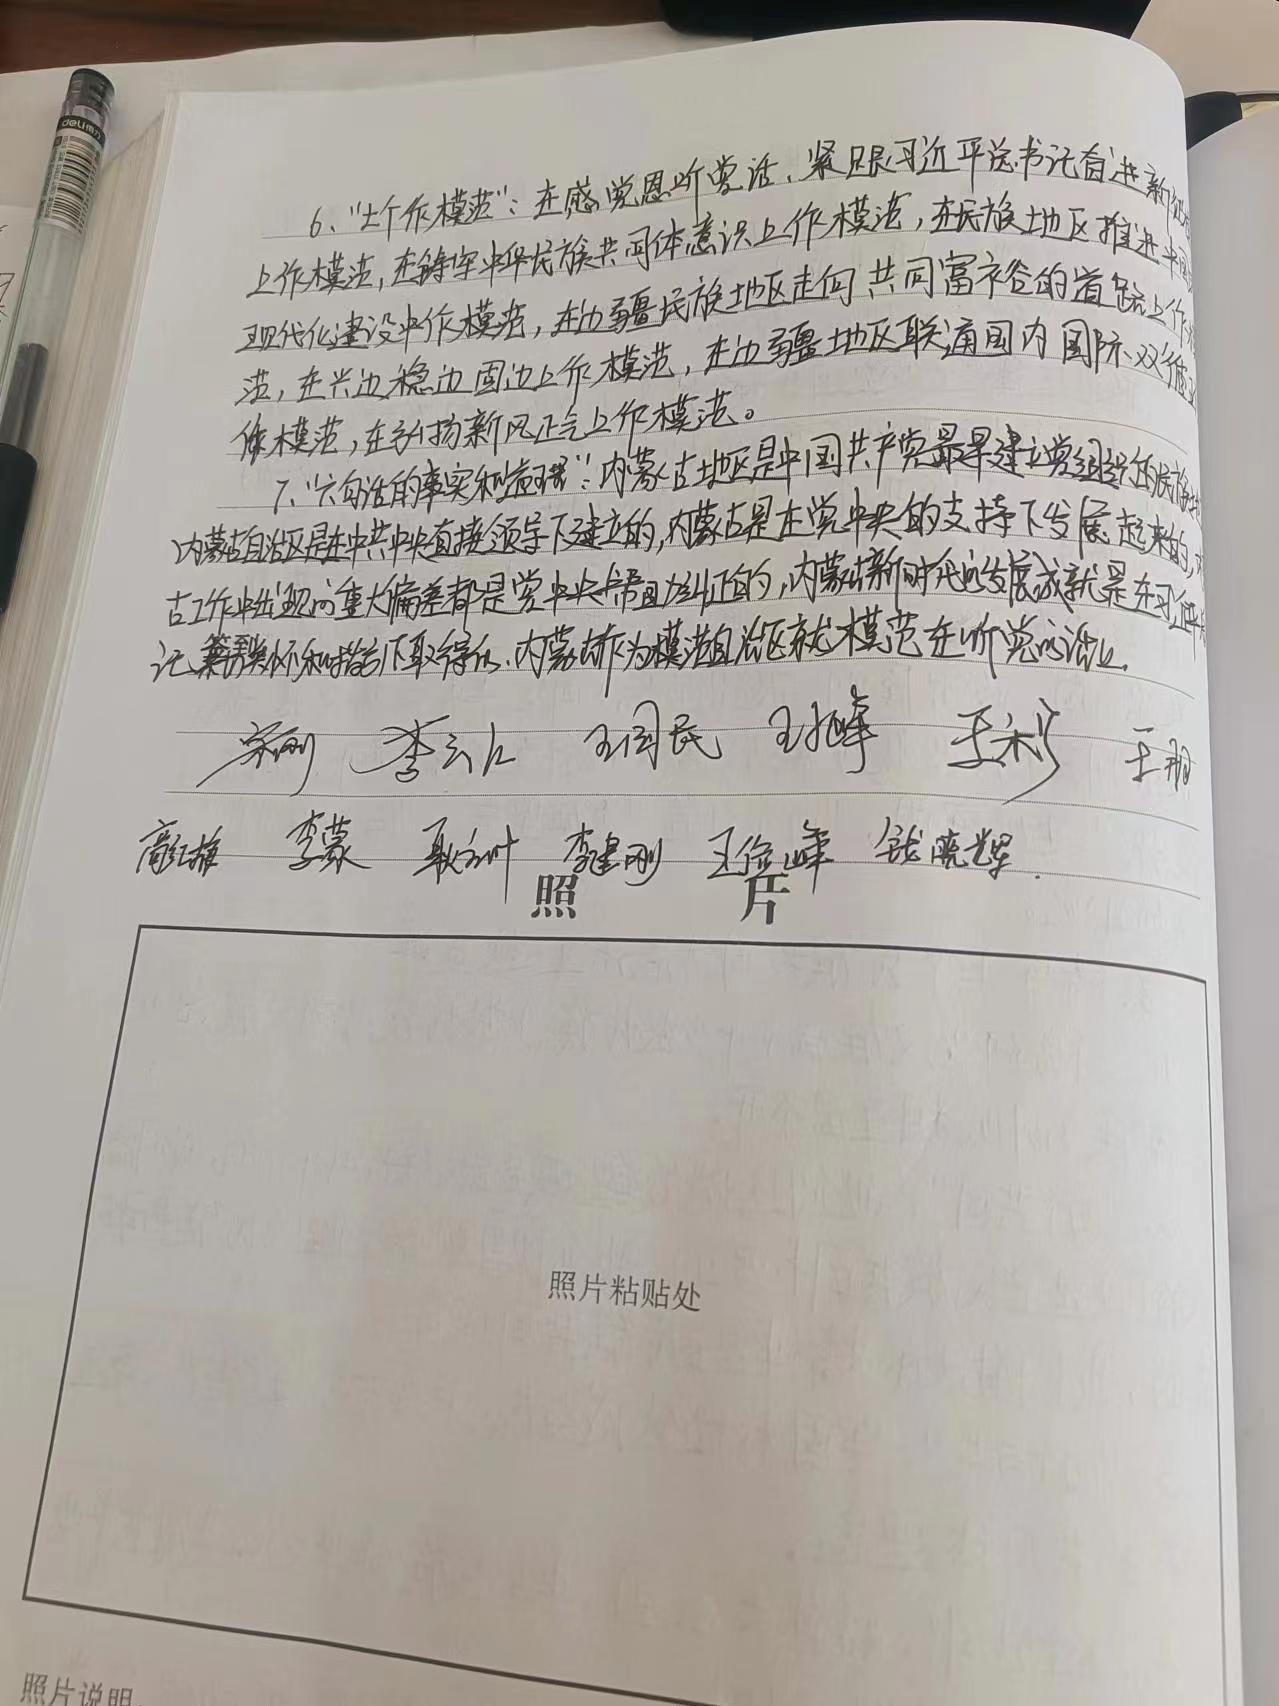 deli得力
6、“七个作模范”：在感党恩听党话、紧跟习近平总书记奋进新征程
上作模范，在铸牢中华民族共同体意识上作模范，在民族地区推进中国
现代化建设中作模范，在边疆民族地区走向共同富裕的道路上作
范，在兴边稳边固边上作模范，在边疆地区联通国内国际双循
作模范，在弘扬新风正气上作模范。
7、“六句话的事实和道理”：内蒙古地区是中国共产党最早建立党组织的民族
内蒙古自治区是在中共中央直接领导下建立的，内蒙古是在党中央的支持下发展起来的，
古工作中出现的重大偏差都是党中央带思纠正的，内蒙古新时代的发展成就是在习近平
记关怀和指引下取得的，内蒙古作为模范自治区就模范在听党的话上.
李云仁 王国民 王旭峰
李蒙 李建刚 王俊峰 钱晓辉.
照 片
照片粘贴处
照片说明